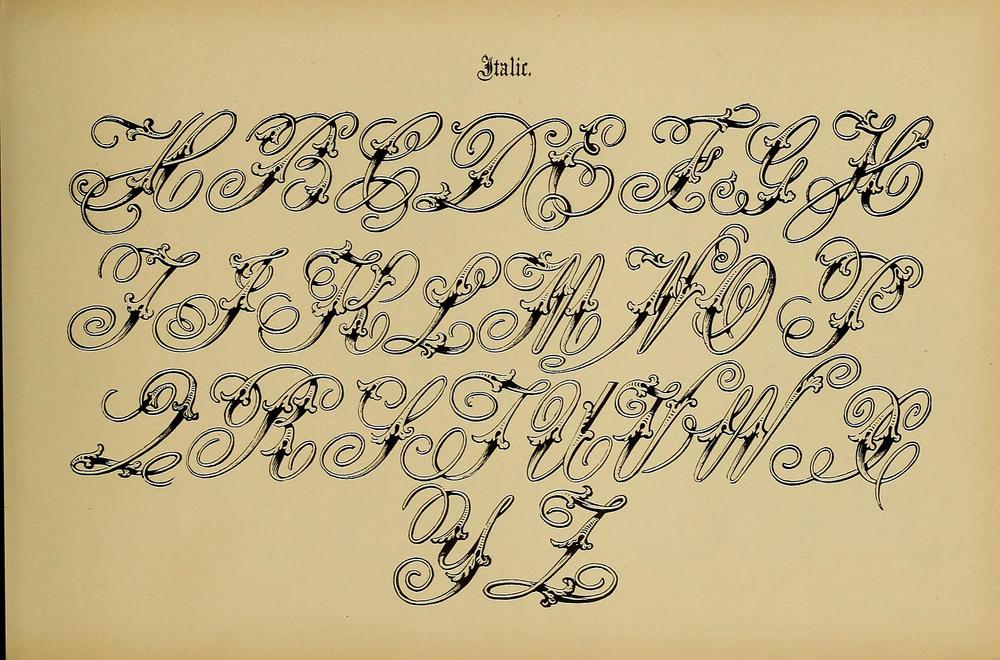 Italic.
A B C D E F G H
I J K L M N O P
Q R S T U V W X
Y Z